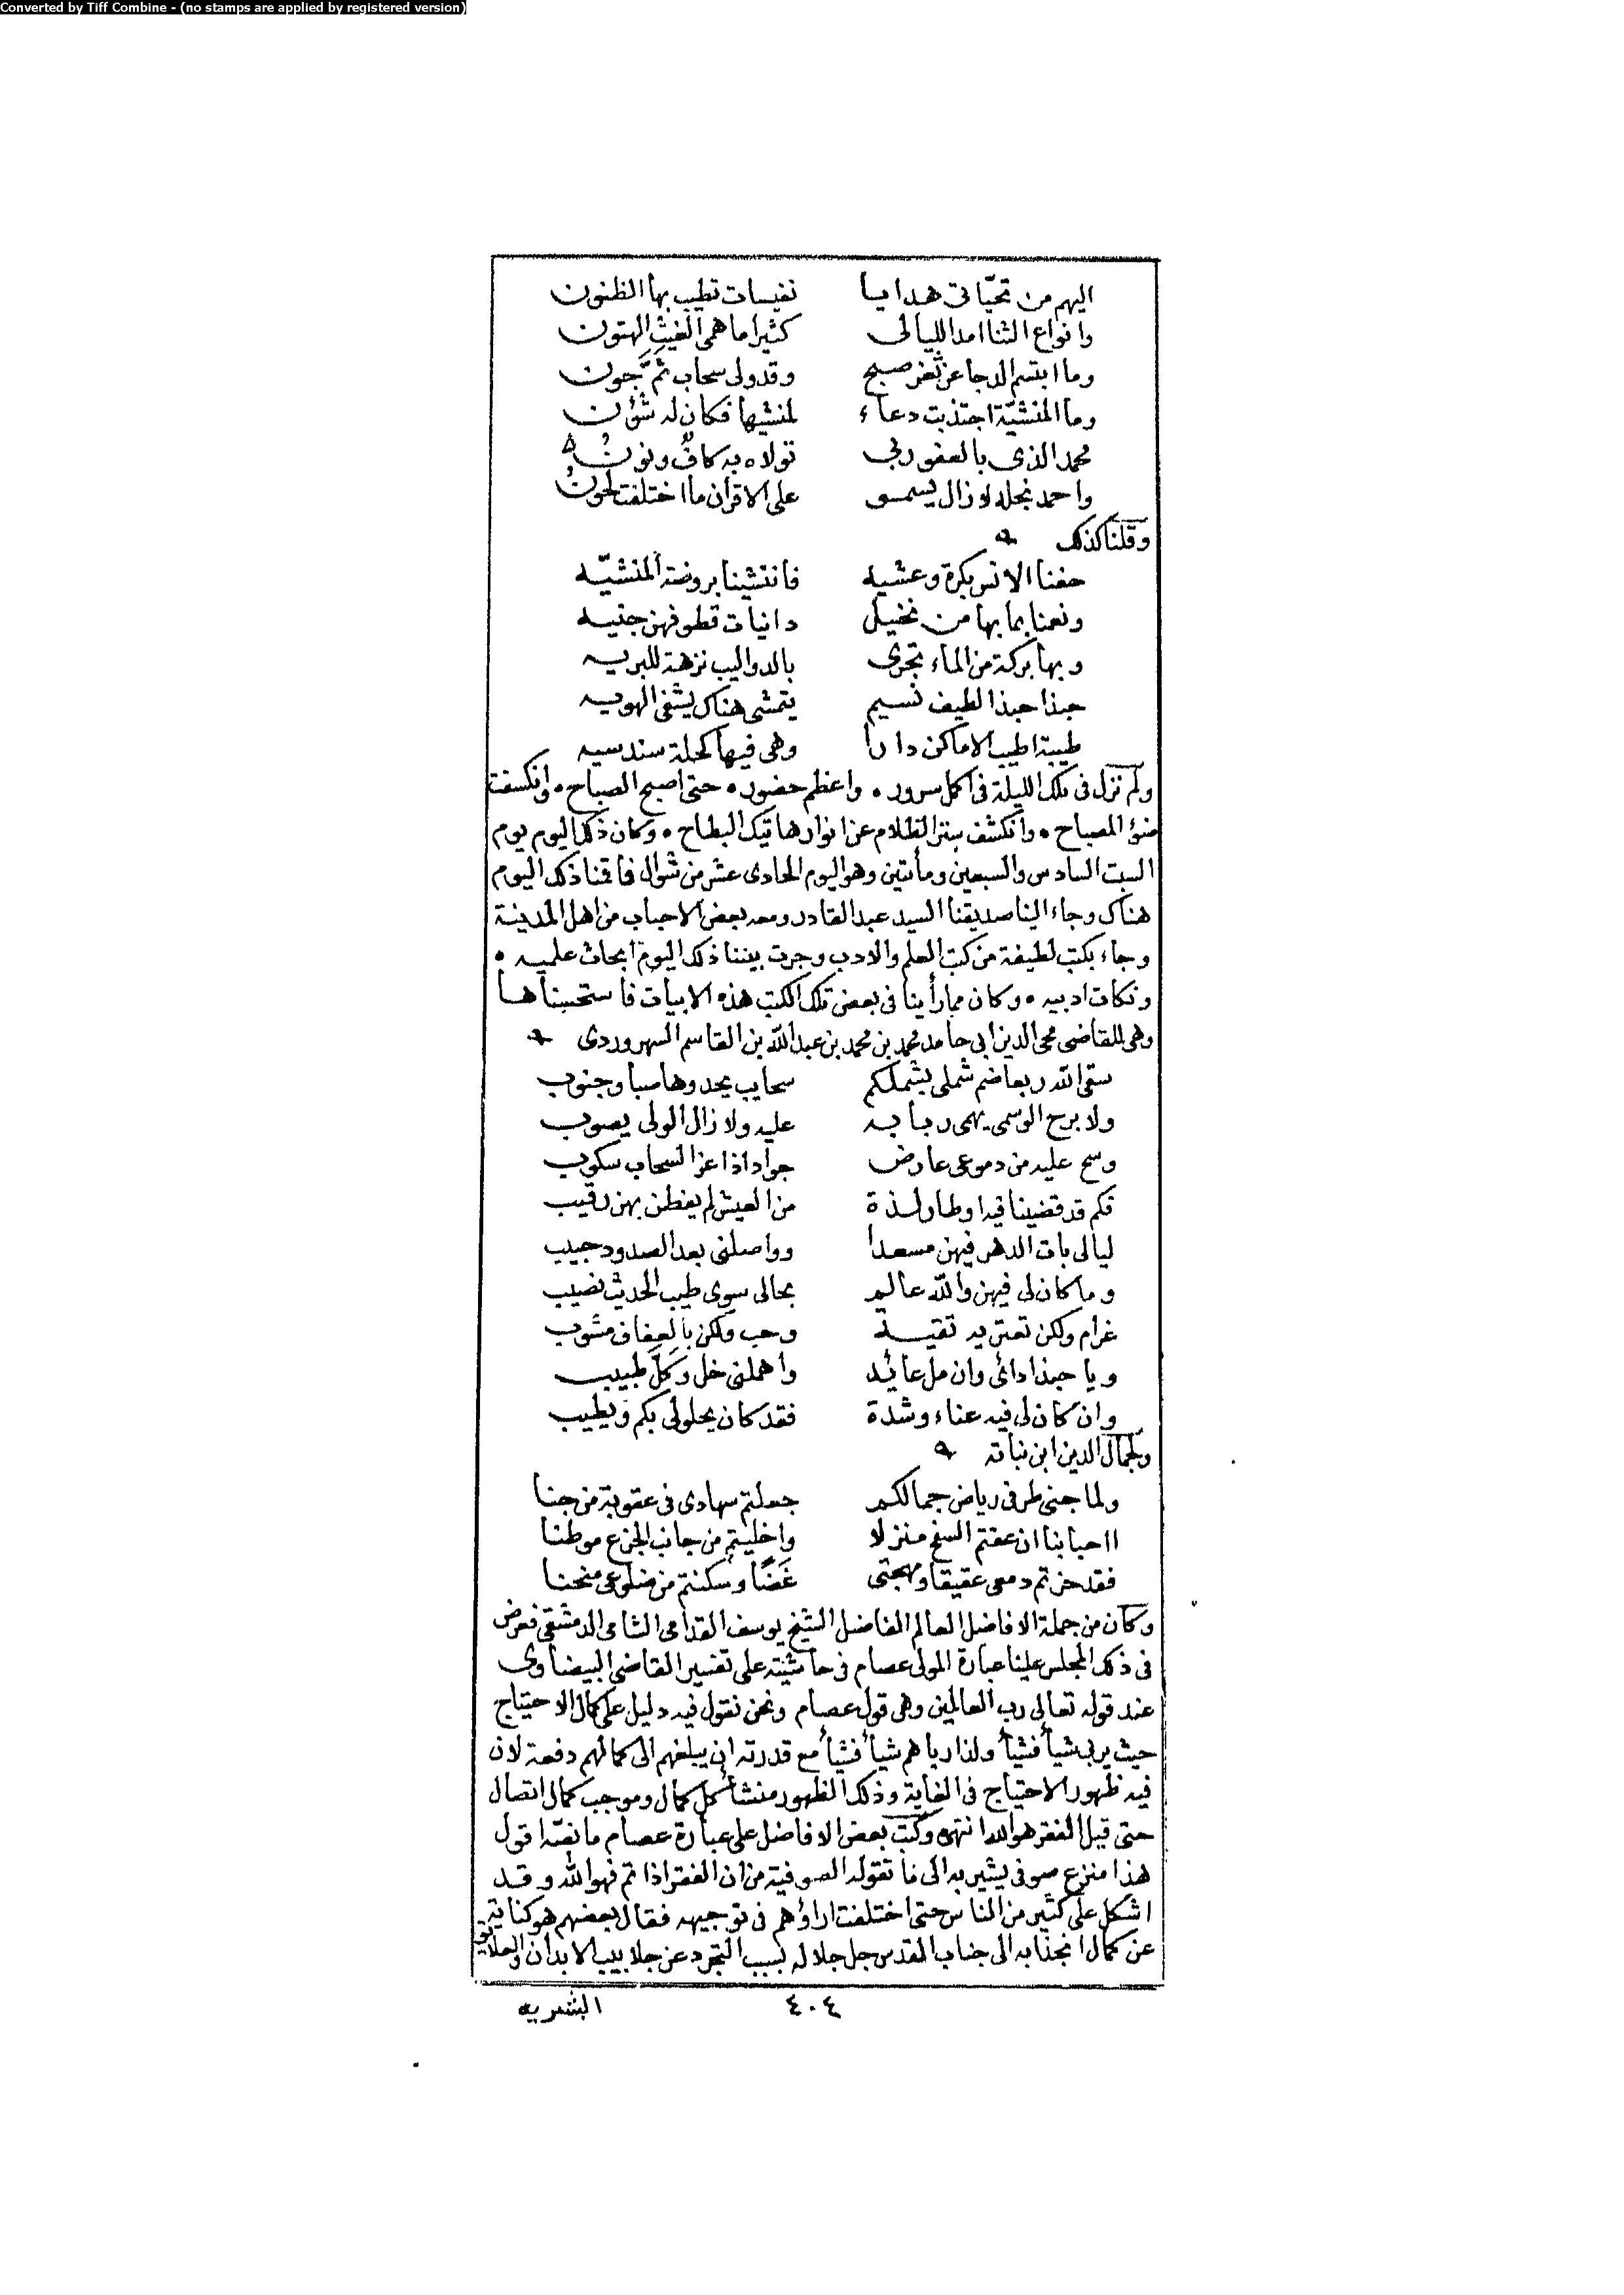 Converted by Tiff Combine - (no stamps are applied by registered version)
اليهم من تحيّاتى هدايا نفيسات تطيب بها الظنون
وانواع الثنا امد الليالى كثيرا ما همى الغيث الهتون
وما ابتسم الدجا عن ثغر صبح وقد ولى سحاب ثمّ جون
وما المنشيّة اجتذبت دعاء لمنشيها فكان له شؤن
محمد الذى بالعفو ربى تولاه به كاف ونون
واحمد نجله لا زال يسمو على الاقران ما اختلفت لحون
وقلنا كذلك
حفنا الانس بكرة وعشيه فانتشينا بروضة المنشيّه
ونعمنا بما بها من نخيل دانيات قطوفهن جنيه
وبها بركة من الماء تجرى بالدواليب نزهة للبريه
حبذا حبذا لطيف نسيم يتمشى هناك يشفى الهويه
طيبة اطيب الاماكن دارا وهى فيها كحلة سندسيه
ولم نزل فى تلك الليلة فى اكمل سرور • واعظم حضور • حتى اصبح الصباح • وانكسفت
ضوء المصباح • وانكشف ستر الظلام عن انوار هاتيك البطاح • وكان ذلك اليوم يوم
السبت السادس والسبعين ومأتين وهو اليوم الحادى عشر من شوال فاقمنا ذلك اليوم
هناك وجاء الينا صديقنا السيد عبد القادر ومعه بعض الاحباب من اهل المدينة
وجاء بكتب لطيفة من كتب العلم والادب وجرت بيننا ذلك اليوم ابحاث علميه •
ونكات ادبيه • وكان مما رأينا فى بعض تلك الكتب هذه الابيات فاستحسناها
وهى للقاضى محى الدين ابى حامد محمد بن محمد بن عبد الله بن القاسم السهروردى
سقى الله ربعا ضم شملى بشملكم سحايب يحدوها صبا وجنوب
ولا برح الوسمى يهمى ربابه عليه ولا زال الولى يصوب
وسح عليه من دموعى عارض جواد اذا عز السحاب سكوب
فكم قد قضينا فيه اوطار لذة من العيش لم يفطن بهن رقيب
ليالى بات الدهر فيهن مسعدا وواصلنى بعد الصدود حبيب
وما كان لى فيهن والله عالم بحالى سوى طيب الحديث نصيب
غرام ولكن تعتريه تقية وحب ولكن بالعفاف مشوب
ويا حبذا دائى وان مل عائد واهملنى خل وكلّ طبيب
وان كان لى فيه عناء وشدة فقد كان يحلولى بكم ويطيب
ولجمال الدين ابن نباته
ولما جنى طرفى رياض جمالكم جعلتم سهادى فى عقوبة من جنا
ااحبابنا ان عفتم السفح منزلا واخليتم من جانب الجزع موطنا
فقد حزتم دمعى عقيقا ومهجتى غضًا وسكنتم من ضلوعى منحنا
وكان من جملة الافاضل العالم الفاضل الشيخ يوسف القدامى الشامى الدمشقى فعرض
فى ذلك المجلس علينا عبارة المولى عصام فى حاشيته على تفسير القاضى البيضاوى
عند قوله تعالى رب العالمين وهى قول عصام ونحن نقول فيه دليل على كمال الاحتياج
حيث يربى شيأ فشيأ ولذا رباهم شيأ فشيأ مع قدرته ان يبلغهم الى كمالهم دفعة لان
فيه ظهور الاحتياج فى الغاية وذلك الظهور منشأ كل كمال وموجب كمال اتصال
حتى قيل الفقر هو الله انتهى وكتب بعض الافاضل على عبارة عصام ما نصّه اقول
هذا منزع صوفى يشير به الى ما تقوله الصوفية من ان الفقر اذا تم فهو الله وقد
اشكل على كثير من الناس حتى اختلفت اراؤهم فى توجيهه فقال بعضهم هو كناية
عن كمال انجذابه الى جناب القدس جل جلاله بسبب التجرد عن جلابيب الابدان والعلايق
٤٠٤
البشريه